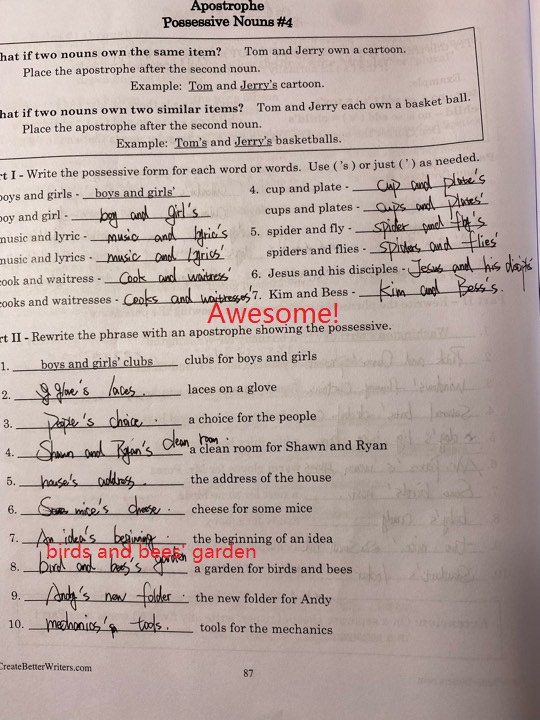 Apostrophe
Possessive Nouns #4
hat if two nouns own the same item? Tom and Jerry own a cartoon.
Place the apostrophe after the second noun.
Example: Tom and Jerry's cartoon.
hat if two nouns own two similar items? Tom and Jerry each own a basket ball.
Place the apostrophe after the second noun.
Example: Tom's and Jerry's basketballs.
rt I - Write the possessive form for each word or words. Use ('s) or just (') as needed.
boys and girls - boys and girls'
boy and girl - boy and girl's
music and lyric - music and lyric's
music and lyrics - music and lyrics'
cook and waitress - Cook and waitress'
ooks and waitresses - Cooks and waitresses'
4. cup and plate - cup and plate's
cups and plates - cups and plates'
5. spider and fly - spider and fly's
spiders and flies - spiders and flies'
6. Jesus and his disciples - Jesus and his
7. Kim and Bess - Kim and Bess's
Awesome!
rt II - Rewrite the phrase with an apostrophe showing the possessive.
1. boys and girls' clubs clubs for boys and girls
2. glove's laces. laces on a glove
3. People's choice. a choice for the people
4. Shawn and Ryan's clean room. a clean room for Shawn and Ryan
5. house's address. the address of the house
6. mice's cheese. cheese for some mice
7. An idea's the beginning of an idea
birds and bees' garden
8. bird and bees's garden a garden for birds and bees
9. Andy's new folder. the new folder for Andy
10. mechanics's tools. tools for the mechanics
CreateBetterWriters.com
87